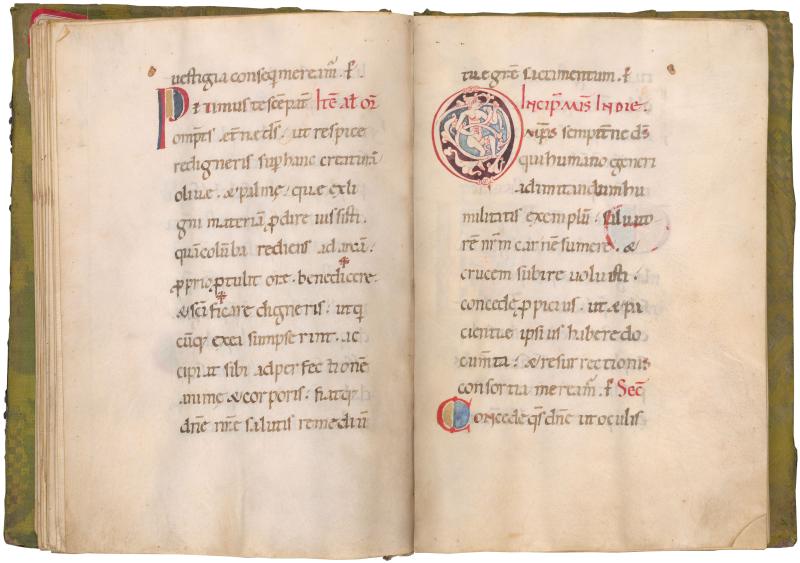 uestigia conseq meream̃. ꝑ
Petimus te sc̃e pat̃ Itẽ al̃ or̃
omnp̃s et̃ne ds̃. ut respice
re digneris sup hanc creaturã
oliue. & palme. que ex li
gni materiã ꝓdire iussisti.
quã colũba rediens ad arcã.
ꝓprio ꝓtulit ore. benedicere
& sc̃ificare digneris. ut q
cũq; ex ea sumpserint. ac
cipiat sibi ad perfectionẽ
anime & corporis. fiatq;
dñe nr̃e salutis remediũ
tue gr̃e sacr̃mentum. ꝑ
Incip̃ mis̃ In die.
Omnip̃s sempit̃ne ds̃
qui humano generi
ad imitandum hu
militatis exemplũ. saluato
rẽ nr̃m carnẽ sumere. &
crucem subire uoluisti.
concede ꝓpicius. ut & pa
cientie ipsius habere do
cum̃ta. & resurrectionis
consortia meream̃. ꝑ Secr̃
Concede qs̃ dñe ut oculis